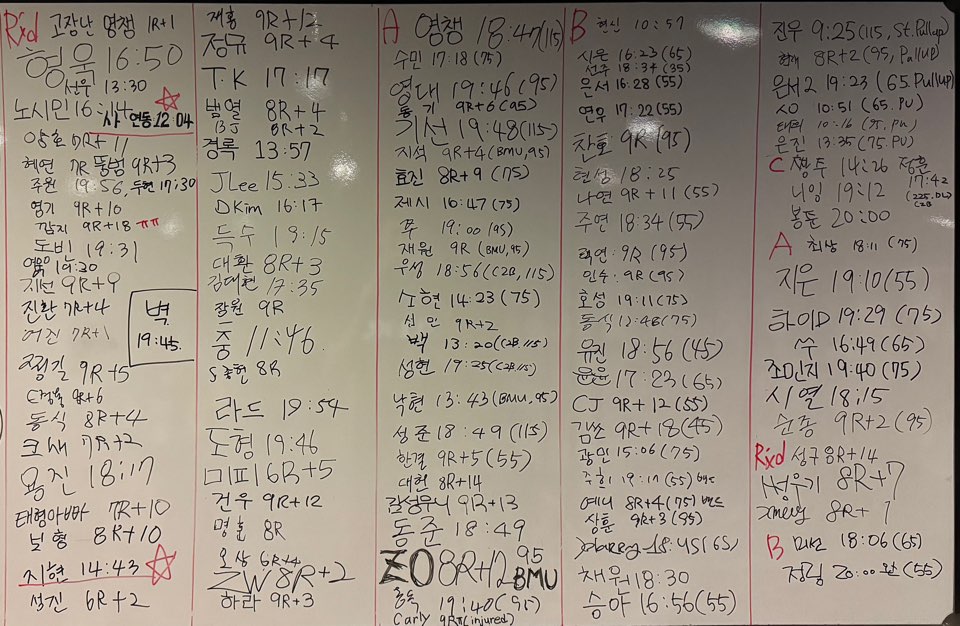 Rxd 고장난 영쟁 1R+1
형욱 16:50
13:30
노시민 16:14 ☆
샤 연동 12:04
양호 7R+11
혜연 7R 뚱범 9R+3
주원 19:56, 두현 17:30
영기 9R+10
깜지 9R+18 ㅠㅠ
도비 19:31
19:20
지선 9R+9
진환 7R+4
어진 7R+1
벽
19:45.
쩡길 9R+5
9R+6
동식 8R+4
크새 7R+2
용진 18:17
태형아빠 7R+10
보형 8R+10
지현 14:43 ☆
석진 6R+2
재홍 9R+12
정규 9R+4
T.K 17:17
범열 8R+4
BJ 8R+2
경록 13:57
JLee 15:33
DKim 16:17
득수 19:15
대환 8R+3
김대현 17:35
9R
중 11:46
S종현 8R
라드 19:54
도형 19:46
미피 16R+5
건우 9R+12
명훈 8R
오상 6R+4
ZW 8R+2
하라 9R+3
A 영쟁 18:47(115)
수민 17:18(75)
영대 19:46(95)
동기 9R+6(95)
기선 19:48(115)
지석 9R+4(BMU,95)
효진 8R+9(75)
제시 16:47(75)
쭈 19:00(95)
재원 9R(BMU,95)
우성 18:56(C2B,115)
소현 14:23(75)
선민 9R+2
백 13:20(C2B,115)
성현 19:25(C2B,115)
낙현 13:43(BMU,95)
성준 18:49(115)
한결 9R+5(55)
대현 8R+14
갈성우니 9R+13
동준 18:49
ZO 8R+12 95 BMU
19:40(95)
Carly 9R (injured)
B 현신 10:57
시은 16:23(65)
선주 18:34(35)
은서 16:28(55)
연우 17:22(55)
찬호 9R(95)
현성 18:25
나연 9R+11(55)
주연 18:34(55)
9R(95)
인수: 9R(95)
호성 19:11(75)
동식 17:48(75)
유진 18:56(45)
윤윤 17:23(65)
CJ 9R+12(55)
김쏘 9R+18(45)
광인 15:06(75)
주희 19:17(55) 밴드
예니 8R+4(75) 밴드
상훈 9R+3(95)
18:45(65)
채원 18:30
승아 16:56(55)
진우 9:25(115, St.Pullup)
8R+2(95, Pullup)
은서2 19:23(65.Pullup)
SO 10:51(65.PU)
10:16(95.PU)
은진 13:35(75.PU)
C 짱두 14:26 정훈 17:42
나잉 19:12 (225.DL) C2B
봉둔 20:00
A 최상 18:11(75)
지은 19:10(55)
하이D 19:29(75)
쑤 16:49(65)
조민지 19:40(75)
시열 18:15
순종 9R+2(95)
Rxd 성구 8R+14
성우기 8R+7
8R+1
B 미선 18:06(65)
정림 20:00 (55)